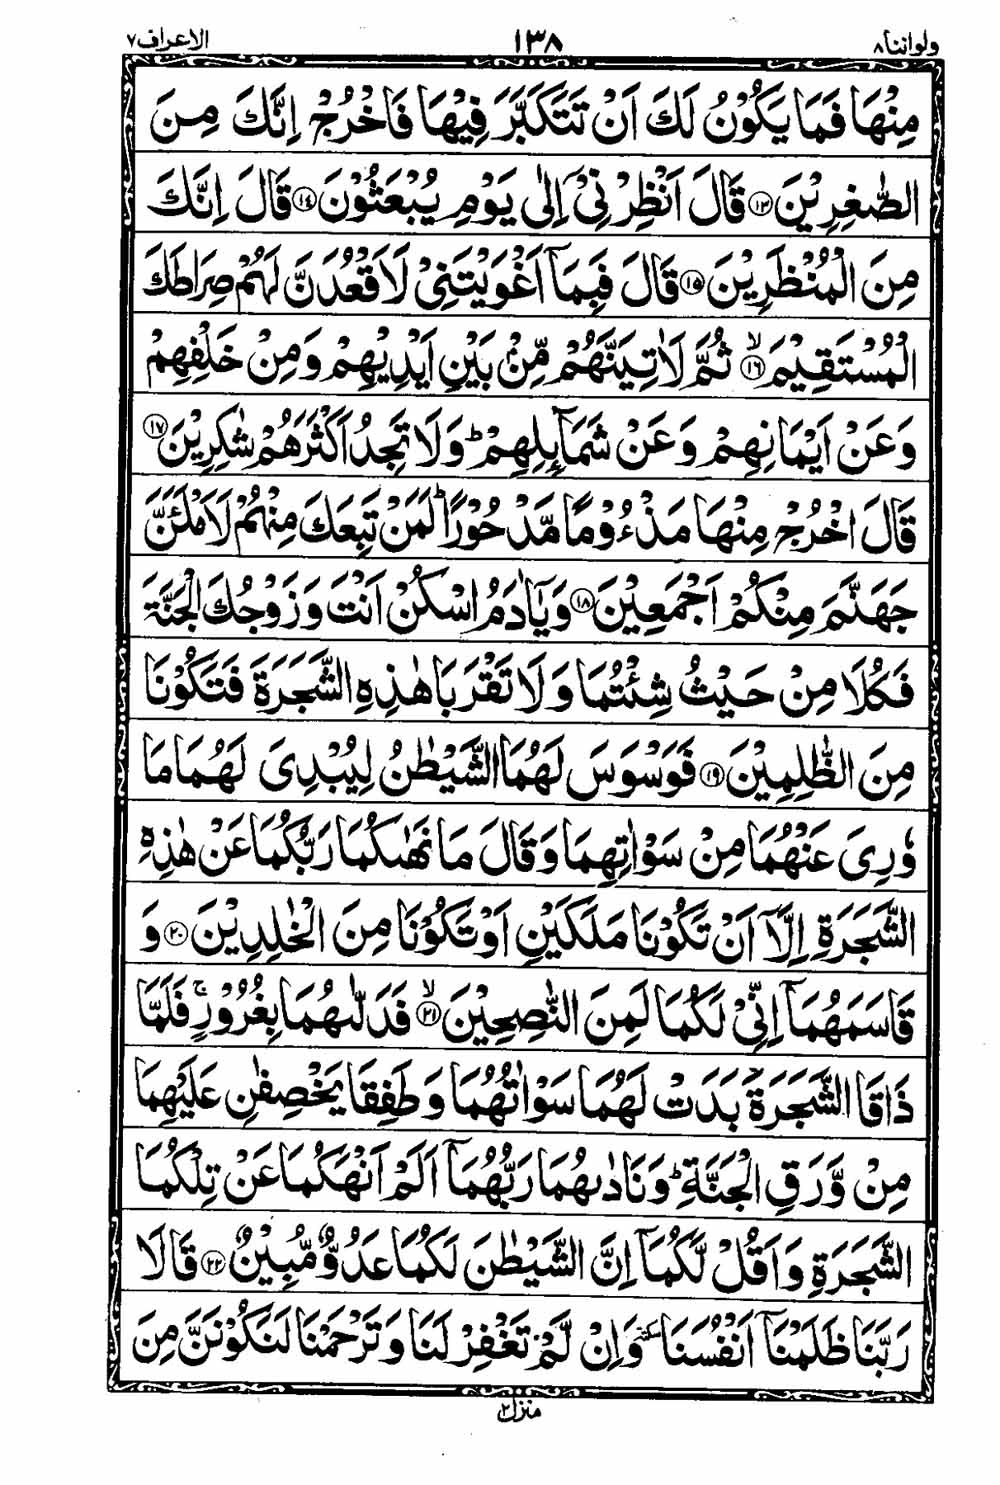 ولواننا ٨ ١٣٨ الاعراف ٧
مِنْهَا فَمَا يَكُوْنُ لَكَ اَنْ تَتَكَبَّرَ فِيْهَا فَاخْرُجْ اِنَّكَ مِنَ
الصّٰغِرِيْنَ ﴿١٣﴾ قَالَ اَنْظِرْنِيْٓ اِلٰى يَوْمِ يُبْعَثُوْنَ ﴿١٤﴾ قَالَ اِنَّكَ
مِنَ الْمُنْظَرِيْنَ ﴿١٥﴾ قَالَ فَبِمَآ اَغْوَيْتَنِيْ لَاَقْعُدَنَّ لَهُمْ صِرَاطَكَ
الْمُسْتَقِيْمَ ﴿١٦﴾ۙ ثُمَّ لَاٰتِيَنَّهُمْ مِّنْۢ بَيْنِ اَيْدِيْهِمْ وَمِنْ خَلْفِهِمْ
وَعَنْ اَيْمَانِهِمْ وَعَنْ شَمَآىِٕلِهِمْ ؕ وَلَا تَجِدُ اَكْثَرَهُمْ شٰكِرِيْنَ ﴿١٧﴾
قَالَ اخْرُجْ مِنْهَا مَذْءُوْمًا مَّدْحُوْرًا ؕ لَمَنْ تَبِعَكَ مِنْهُمْ لَاَمْلَئَنَّ
جَهَنَّمَ مِنْكُمْ اَجْمَعِيْنَ ﴿١٨﴾ وَيٰٓاٰدَمُ اسْكُنْ اَنْتَ وَزَوْجُكَ الْجَنَّةَ
فَكُلَا مِنْ حَيْثُ شِئْتُمَا وَلَا تَقْرَبَا هٰذِهِ الشَّجَرَةَ فَتَكُوْنَا
مِنَ الظّٰلِمِيْنَ ﴿١٩﴾ فَوَسْوَسَ لَهُمَا الشَّيْطٰنُ لِيُبْدِيَ لَهُمَا مَا
وٗرِيَ عَنْهُمَا مِنْ سَوْاٰتِهِمَا وَقَالَ مَا نَهٰىكُمَا رَبُّكُمَا عَنْ هٰذِهِ
الشَّجَرَةِ اِلَّآ اَنْ تَكُوْنَا مَلَكَيْنِ اَوْ تَكُوْنَا مِنَ الْخٰلِدِيْنَ ﴿٢٠﴾ وَ
قَاسَمَهُمَآ اِنِّيْ لَكُمَا لَمِنَ النّٰصِحِيْنَ ﴿٢١﴾ۙ فَدَلّٰىهُمَا بِغُرُوْرٍ ۚ فَلَمَّا
ذَاقَا الشَّجَرَةَ بَدَتْ لَهُمَا سَوْاٰتُهُمَا وَطَفِقَا يَخْصِفٰنِ عَلَيْهِمَا
مِنْ وَّرَقِ الْجَنَّةِ ؕ وَنَادٰىهُمَا رَبُّهُمَآ اَلَمْ اَنْهَكُمَا عَنْ تِلْكُمَا
الشَّجَرَةِ وَاَقُلْ لَّكُمَآ اِنَّ الشَّيْطٰنَ لَكُمَا عَدُوٌّ مُّبِيْنٌ ﴿٢٢﴾ قَالَا
رَبَّنَا ظَلَمْنَآ اَنْفُسَنَا سكتة وَاِنْ لَّمْ تَغْفِرْ لَنَا وَتَرْحَمْنَا لَنَكُوْنَنَّ مِنَ
منزل ٢